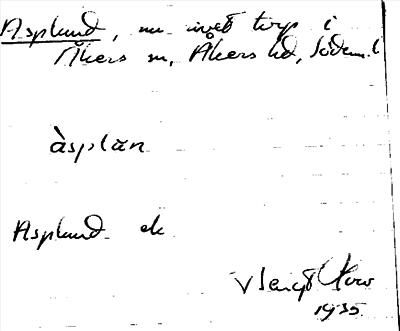 Asplund, nu torp i
Åkers sn, Åkers hd, Söderm.l
àsplan
Asplund ek
Bengt
1935